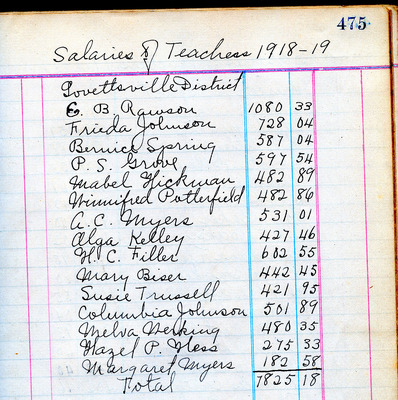 475
Salaries of Teachers 1918-19
Lovettsville District
E. B. Rawson 1080 33
Frieda Johnson 728 04
Bernice Spring 587 04
P. S. Grove 597 54
Mabel Hickman 482 89
Winnifred Potterfield 482 86
A. C. Myers 531 01
Olga Kelley 427 46
H. C. Filler 602 55
Mary Biser 442 45
Susie Trussell 421 95
Columbia Johnson 501 89
Melva Werking 480 35
Hazel P. Ness 275 33
Margaret Myers 182 58
Total 7825 18